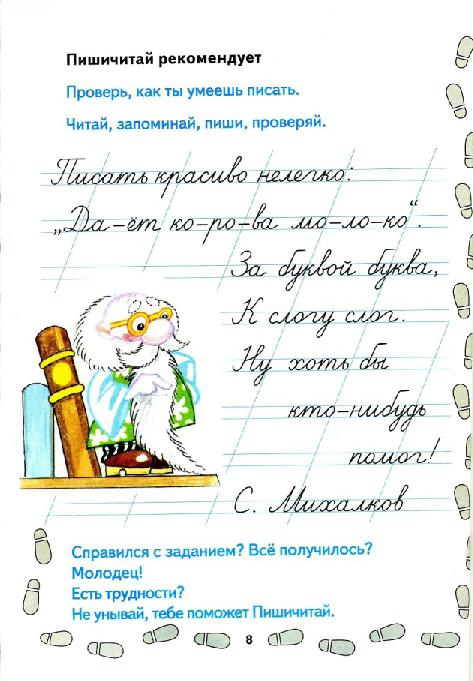 Пишичитай рекомендует
Проверь, как ты умеешь писать.
Читай, запоминай, пиши, проверяй.
Писать красиво нелегко:
„Да-ёт ко-ро-ва мо-ло-ко“.
За буквой буква,
К слогу слог.
Ну хоть бы
кто-нибудь
помог!
С. Михалков
Справился с заданием? Всё получилось?
Молодец!
Есть трудности?
Не унывай, тебе поможет Пишичитай.
8